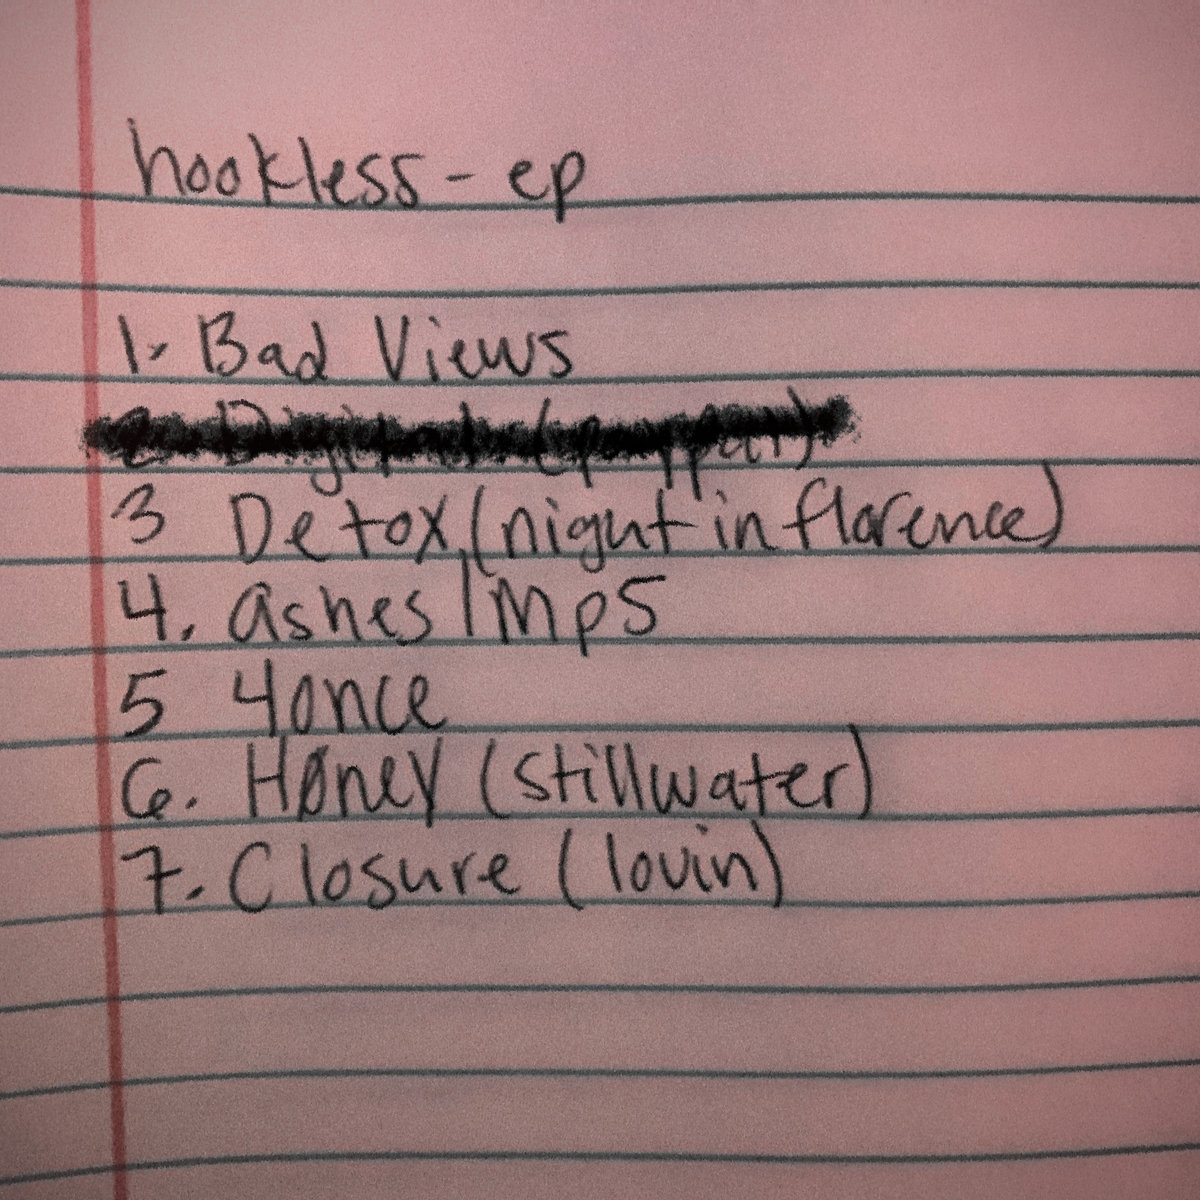 hookless - ep
1. Bad Views
3 Detox, (night in florence)
4. ashes | Mp5
5 4once
6. Høney (stillwater)
7. Closure (lovin)